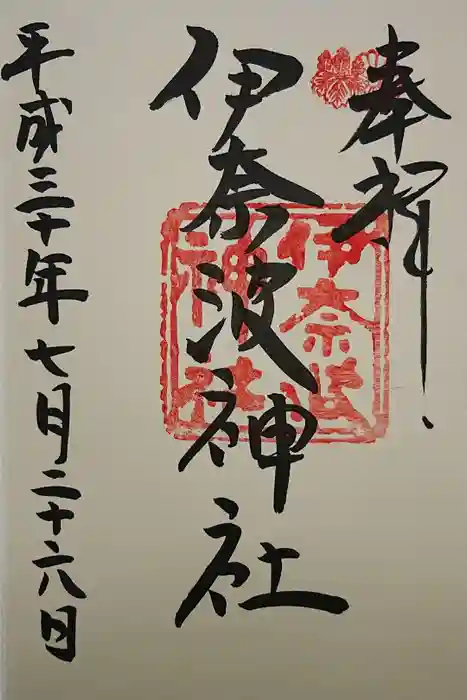 奉拝
伊奈波神社
伊奈波
神社
平成三十年七月二十六日